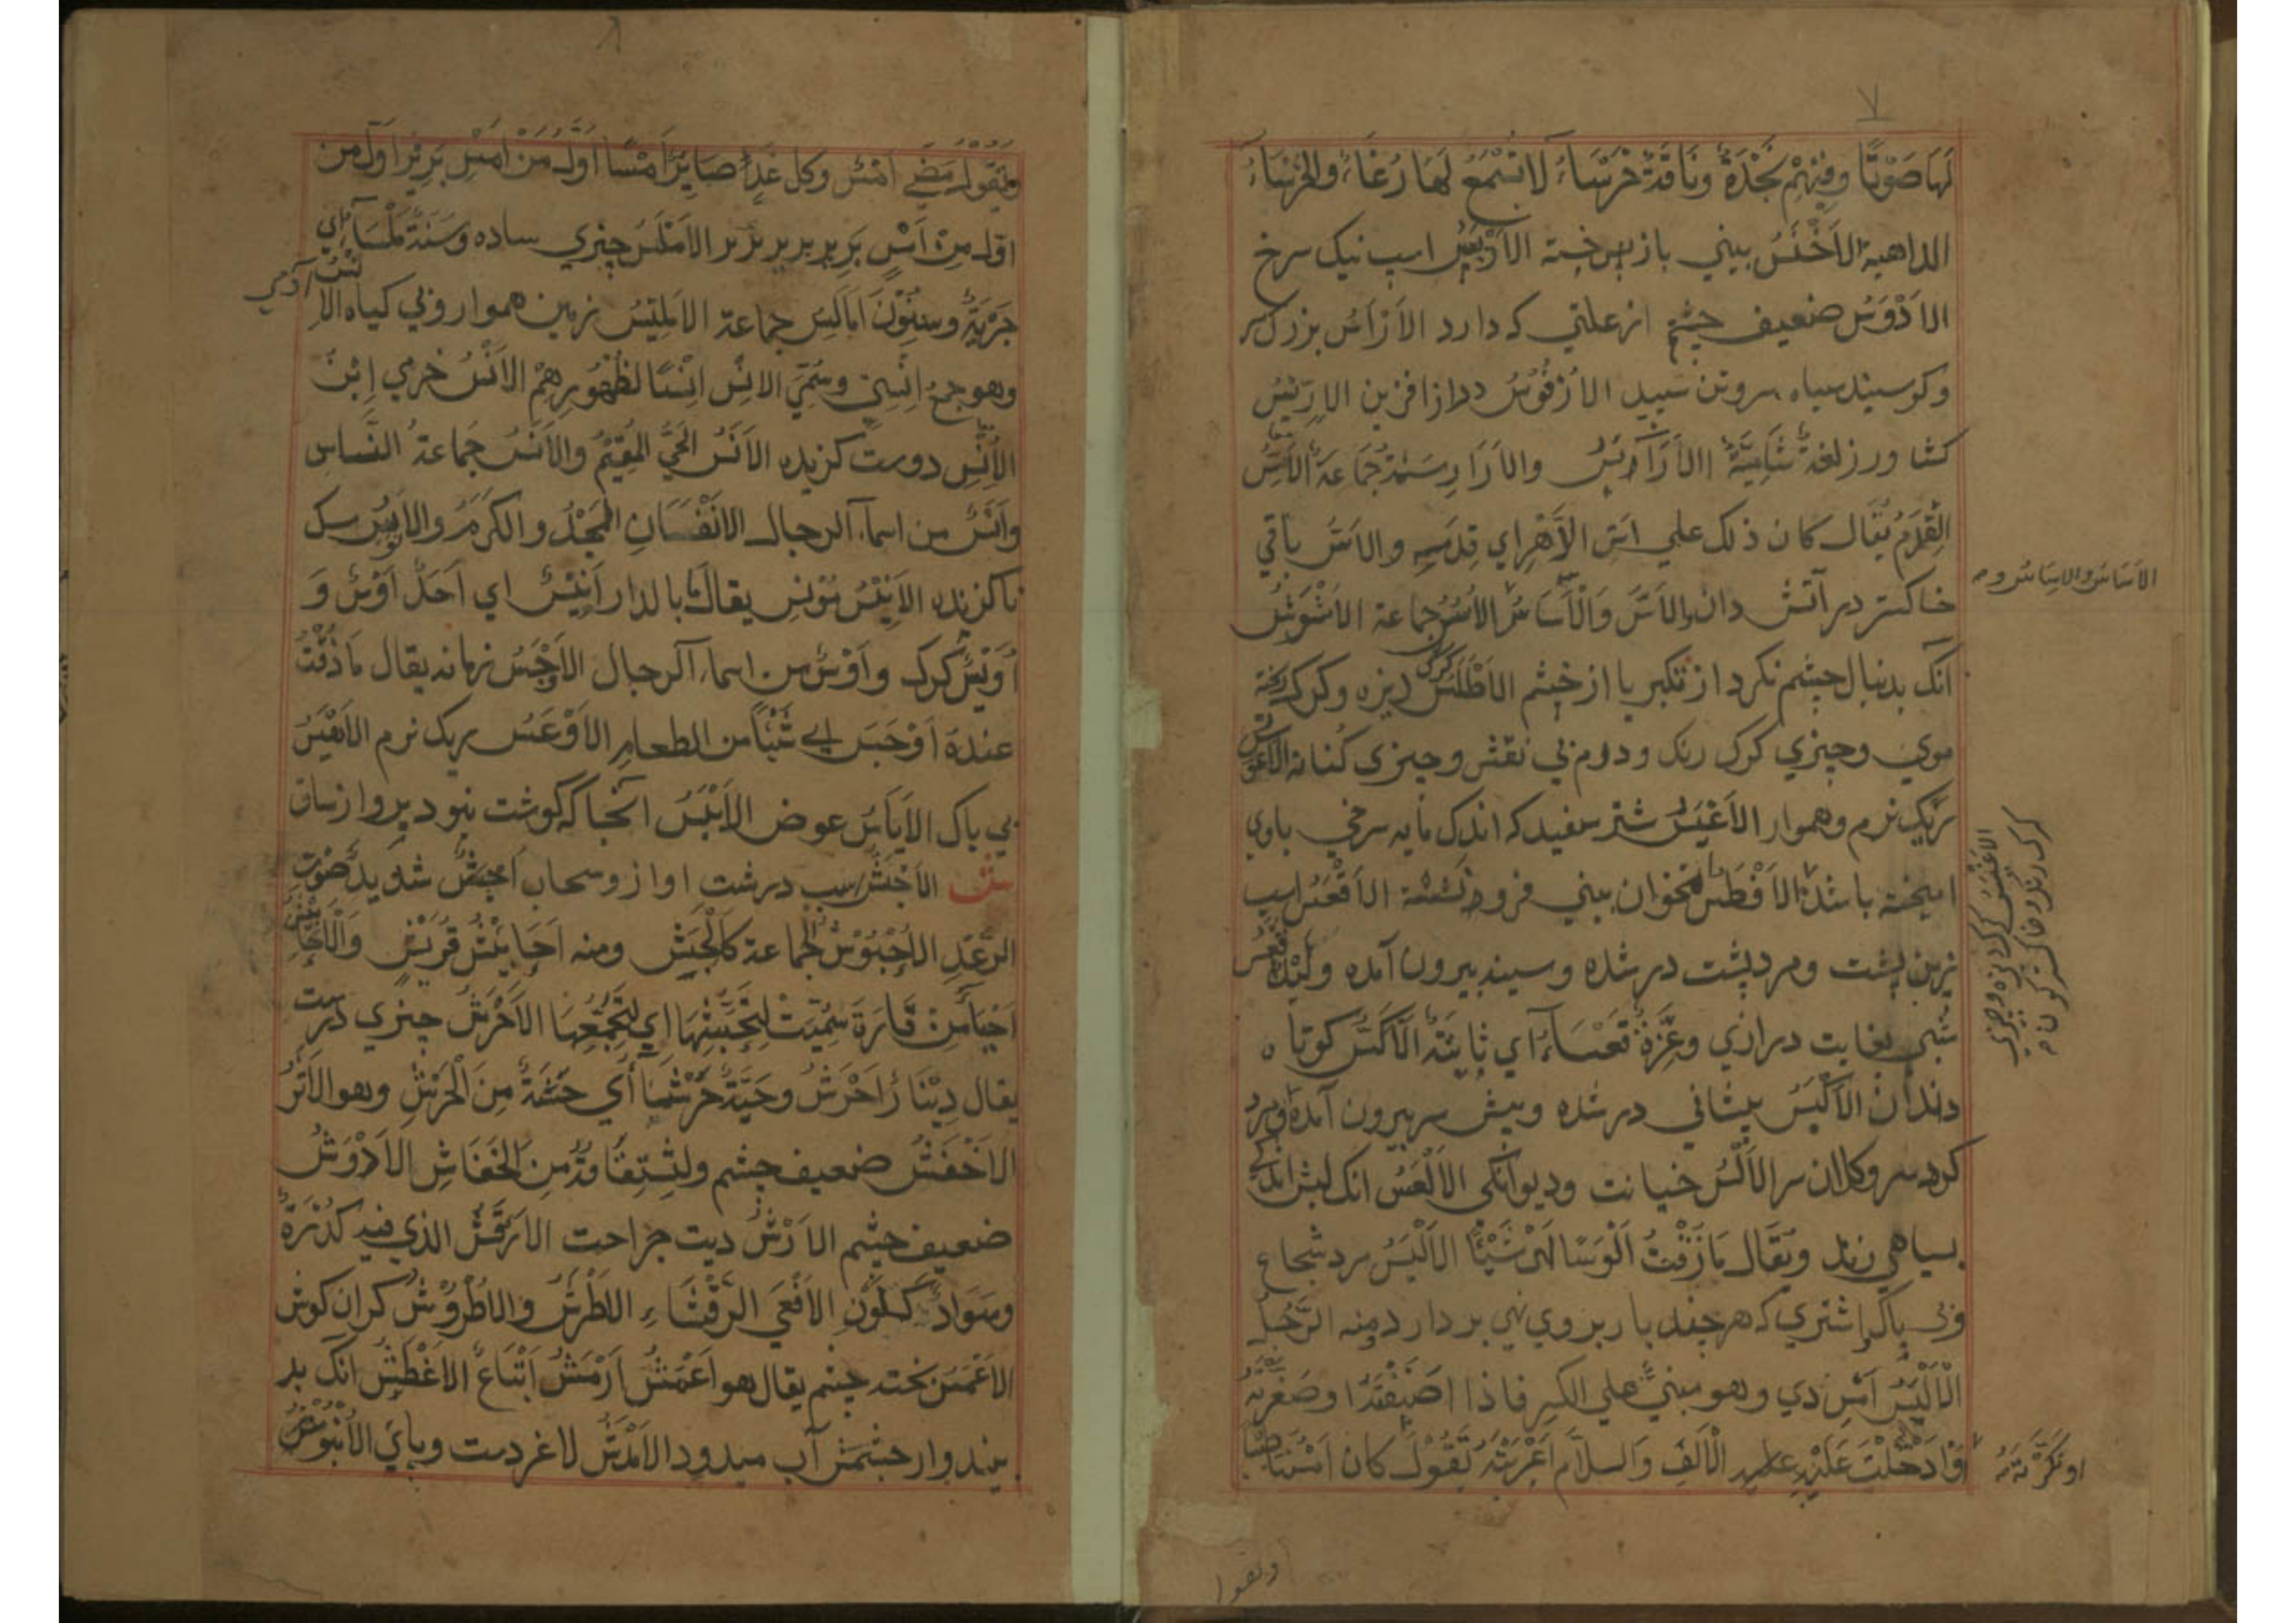 ٧
لَهَا صَوْتًا وفيهِمْ نَجْدَةٌ وناقَةٌ خَرْسَاءُ لا تُسْمَعُ لَهَا رُغَاءٌ والخَرْسَاءُ
الداهية الاَخْنَسُ بيني باز پس خسته اسپ نيك سرخ
الاَدْوَسُ ضعيف چشم از علتي كه دارد الاَرْأَسُ بزرك سر
وكوسپند سياه سر وتن سپيد
كشاورز لغةٌ شَامِيَّةٌ جَمَاعَة الاَسُّ
القِدَمُ يُقَال كان ذلك علي اَسِّ الدَّهْرِ اي قِدَمِه والاَسُّ باقي
خاكستر در آتش دان والاَسُّ وَالْاَسَاسُ الاُسُسُ جماعة الاَشْوَسُ
آنك بدنبال چشم نكرد از تكبر يا از خشم الاَطْلَسُ كرك ديزه وكرك ريخته
موي وچيزي كرك رنك ودرم بي نقش وچيزي الاَوْعَسُ
ريك نرم وهموار الاَعْيَسُ شتر سفيد كه اندك مايه سرخي باوي
اميخته باشد الاَفْطَسُ استخوان بيني فرو نشسته الاَقْعَسُ اسپ
زين پشت ومرد پشت در شده وسينه بيرون آمده ولَيْلٌ اَقْعَسُ
شبي بغايت درازي وعِزَّةٌ قَعْسَاءُ اي ثَابِتَةٌ الاَكَسُّ كوتاه
دندان الاَكْبَسُ پيشاني در شده وپيش سر بيرون آمده ومرد
كرد سر وكلان سر الاَلْسُ خيانت وديوانكي الاَلْعَسُ انك لبش اندكي
بسياهي زند ويُقَال مَا ذُقْتُ اَلُوسًا اي شَيْئًا الاَلْيَسُ مرد شجاع
وبي باك واشتري كه هر چند بار بر وي نهي بردارد ومنه الرَّجُلُ
الاَلْيَسُ اَمْسِ دي وهو مبنيٌّ علي الكسر فاذا اَضَفْتَهُ او صَغَّرْتَهُ
اَوْ اَدْخَلْتَ عَلَيْهِ الْاَلِفَ وَاللاَّمَ اَعْرَبْتَهُ تَقُوْلُ كان اَمْسُنَا طَيِّبًا
الاَسَاسُ والاِسَاسُ
الاَغْبَسُ كرك ديزه وچيزي
كرك رنك وخاكستر كون
اَو نَكَّرْتَهُ
وتقول
٨
وتَقُولُ مَضَي اَمْسُ وكل غَدٍ صَايِرٌ اَمْسًا اَوَّلَ مِنْ اَمْسِ پرير اَوَّلَ مِنْ
اوّل مِنْ اَمْسِ الاَمْلَسُ چيزي ساده وسَنَةٌ مَلْسَاءُ اي
جَرْبَةٌ وسِنُوْنَ اَمَالِسُ جماعة الاِمْلِيْسُ زمين هموار وبي كياه الاِنْسُ آدمي
وهو جمع اِنْسِيّ وسُمِّيَ الاِنْسُ اِنْسًا لظُهُورِهِمْ الاُنْسُ خرمي اِبْنُ
الاُنْسِ دوست كزيده الاَنَسُ الحَيُّ المُقِيْمُ والاَنَسُ جَماعةُ النَّاسِ
واَنَسٌ من اسماء الرجال الاَنْفَسَانِ المَجْدُ والكَرَمُ سك
نا كزنده الاَنِيْسُ مُوْنِس يقال ما بالدار اَنِيْسٌ اي اَحَدٌ اَوْسٌ وَ
اُوَيْسٌ كرك واَوْسٌ من اسماء الرجال الاَوْجَسُ زمانه يقال مَا ذُقْتُ
عنده اَوْجَسَ اي شَيْئًا من الطعام الاَوْعَسُ ريك نرم الاَهْيَسُ
بي باك الاَيَاسُ عوض الاَيْبَسُ آنجا كه كوشت نبود بر وا ز ساق
ش الاَجَشُّ اسب درشت اواز وسحاب اَجَشُّ شديد صَوْتِ
الرَّعْدِ الاُحْبُوْشُ الجماعة كَالْحَبَشِ ومنه اَحَابِيْشُ قُرَيْشٍ والاَحَابِيْشُ
اَحْيَاءٌ مِنْ قَارَةَ سُمِّيَتْ لِتَحَبُّشِهَا اي لِتَجَمُّعِهَا الاَحْرَشُ چيزي درشت
يقال دِيْنَارٌ اَحْرَشُ وحَيَّةٌ حَرْشَاءُ اَي خَشِنَةٌ مِنَ الْحَرْشِ وهو الاَثَرُ
الاَخْفَشُ ضعيف چشم واشتقاقه مِنَ الخَفَاشِ الاَدْوَشُ
ضعيف چشم الاَرْشُ ديت جراحت الاَرْقَشُ الذي فيه كُدْرَةٌ
وسَوَادٌ كَلَوْنِ الاَفْعَي الرَّقْشَاءِ الاَطْرَشُ والاُطْرُوْشُ كران كوش
الاَعْمَشُ چشم يقال هو اَعْمَشُ اَرْمَشُ اِتْبَاعٌ الاَغْطَشُ انك بد
بيند واز چشمش آب ميدود الاَمْدَشُ لاغر دست